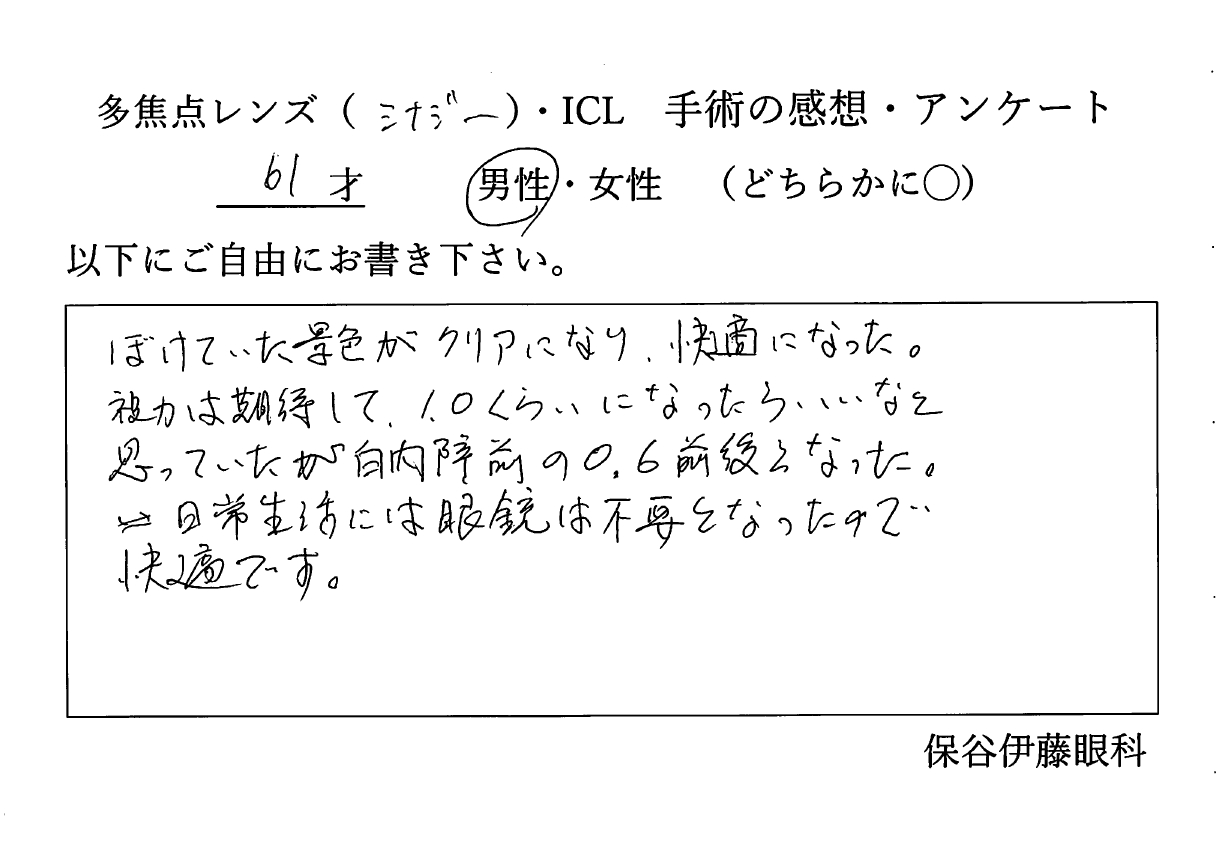 多焦点レンズ（シナジー）・ICL 手術の感想・アンケート
61才 男性・女性 （どちらかに○）
以下にご自由にお書き下さい。
ぼけていた景色がクリアになり、快適になった。
視力は期待して、1.0くらいになったらいいなと
思っていたが白内障前の0.6前後となった。
日常生活には眼鏡は不要となったので
快適です。
保谷伊藤眼科